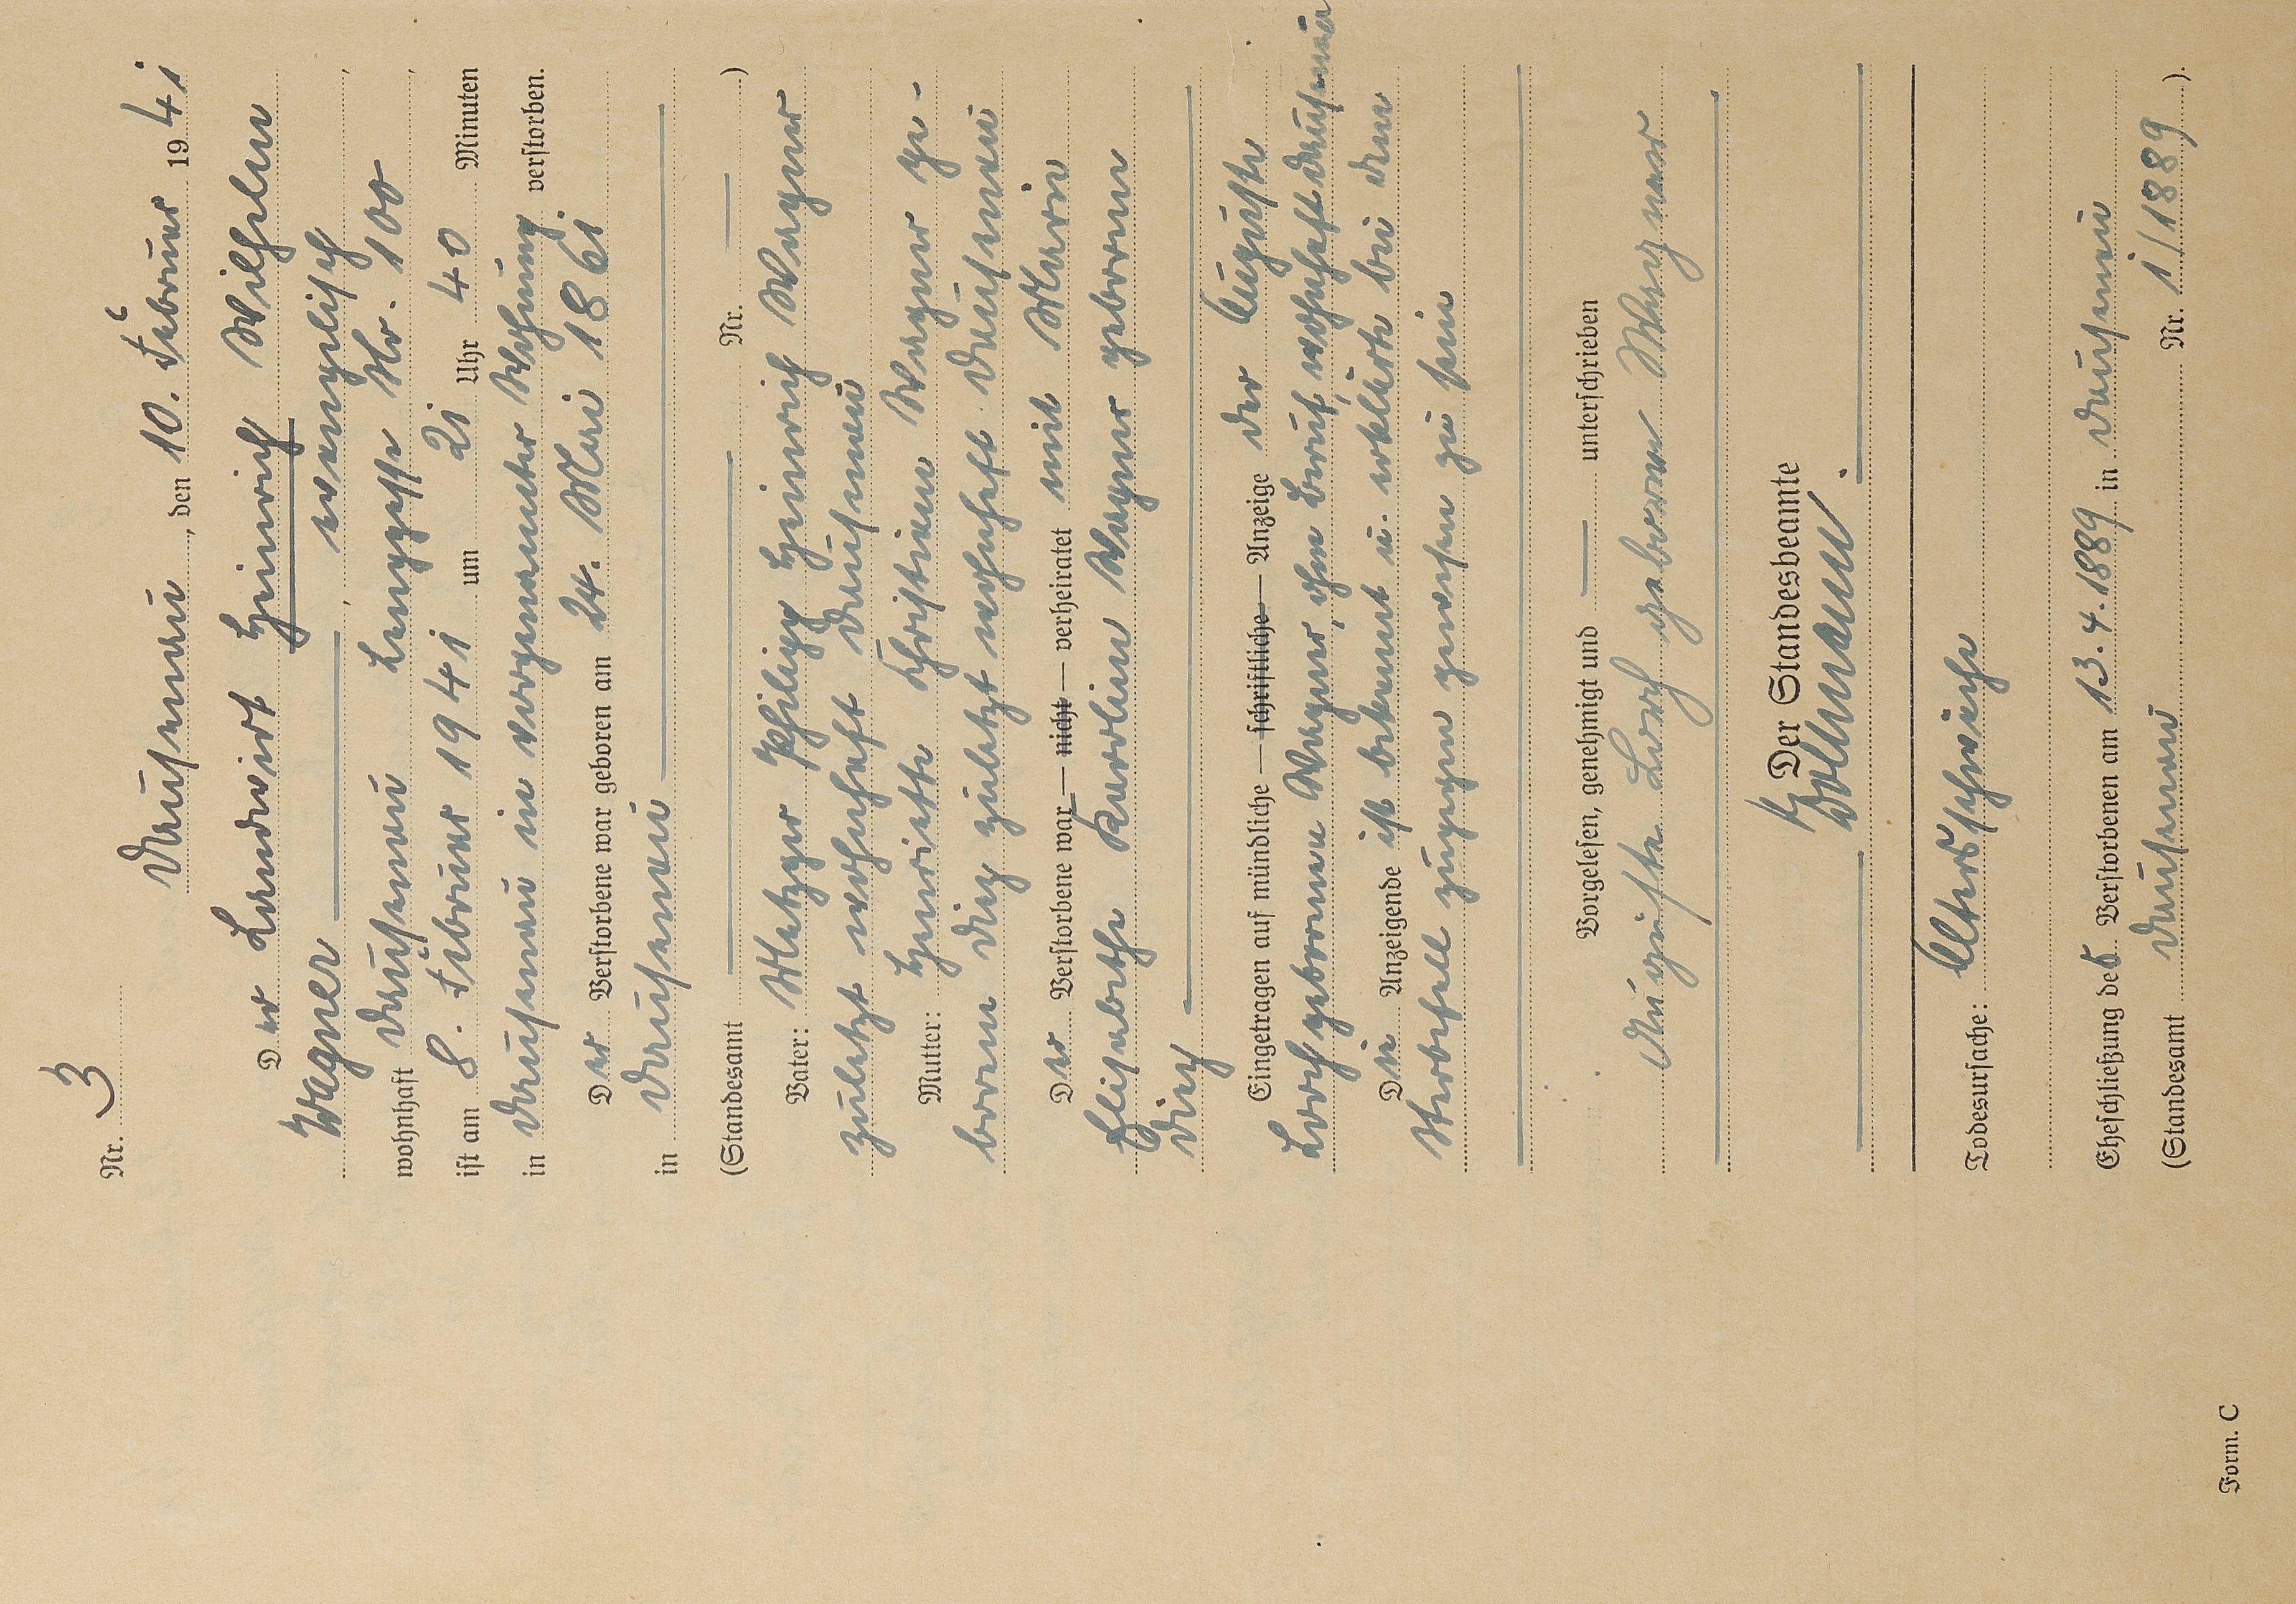 Nr. 3
Dausenau, den 10. Februar 1941
Der Landwirt Heinrich Wilhelm
Wagner, evangelisch,
wohnhaft Dausenau Langgasse Nr. 100,
ist am 8. Februar 1941 um 21 Uhr 40 Minuten
in Dausenau in vorgenannter Wohnung verstorben.
Der Verstorbene war geboren am 24. Mai 1861
in Dausenau
(Standesamt Nr. )
Vater: Metzger Philipp Heinrich Wagner
zuletzt wohnhaft Dausenau
Mutter: Henriette Christiane Wagner ge-
borene Diez zuletzt wohnhaft Dausenau
Der Verstorbene war — nicht — verheiratet mit Marie
Elisabethe Karoline Wagner geborene
Diez
Eingetragen auf mündliche — schriftliche — Anzeige der Auguste
Lorch geborene Wagner, ohne Beruf, wohnhaft Dausenau
Die Anzeigende ist bekannt u. erklärte bei dem
Sterbefall zugegen gewesen zu sein
Vorgelesen, genehmigt und unterschrieben
Auguste Lorch geborene Wagner
Der Standesbeamte
Todesursache: Altersschwäche
Eheschließung des Verstorbenen am 13. 4. 1889 in Dausenau
(Standesamt Dausenau Nr. 1/1889 ).
Form. C